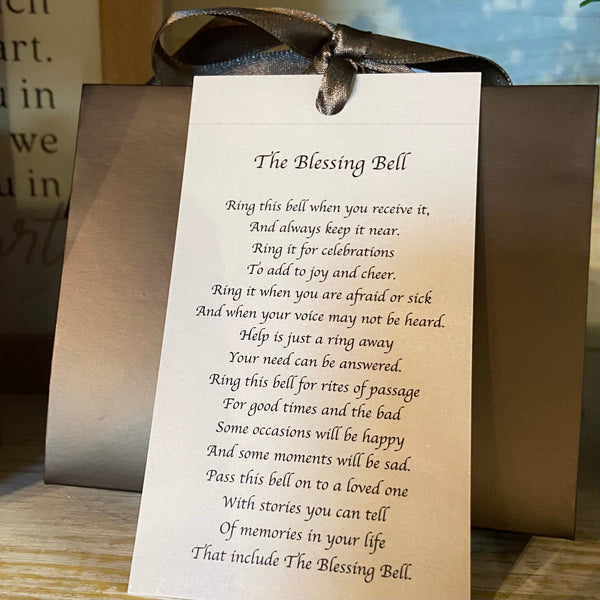 art.
in
we
in
The Blessing Bell
Ring this bell when you receive it,
And always keep it near.
Ring it for celebrations
To add to joy and cheer.
Ring it when you are afraid or sick
And when your voice may not be heard.
Help is just a ring away
Your need can be answered.
Ring this bell for rites of passage
For good times and the bad
Some occasions will be happy
And some moments will be sad.
Pass this bell on to a loved one
With stories you can tell
Of memories in your life
That include The Blessing Bell.